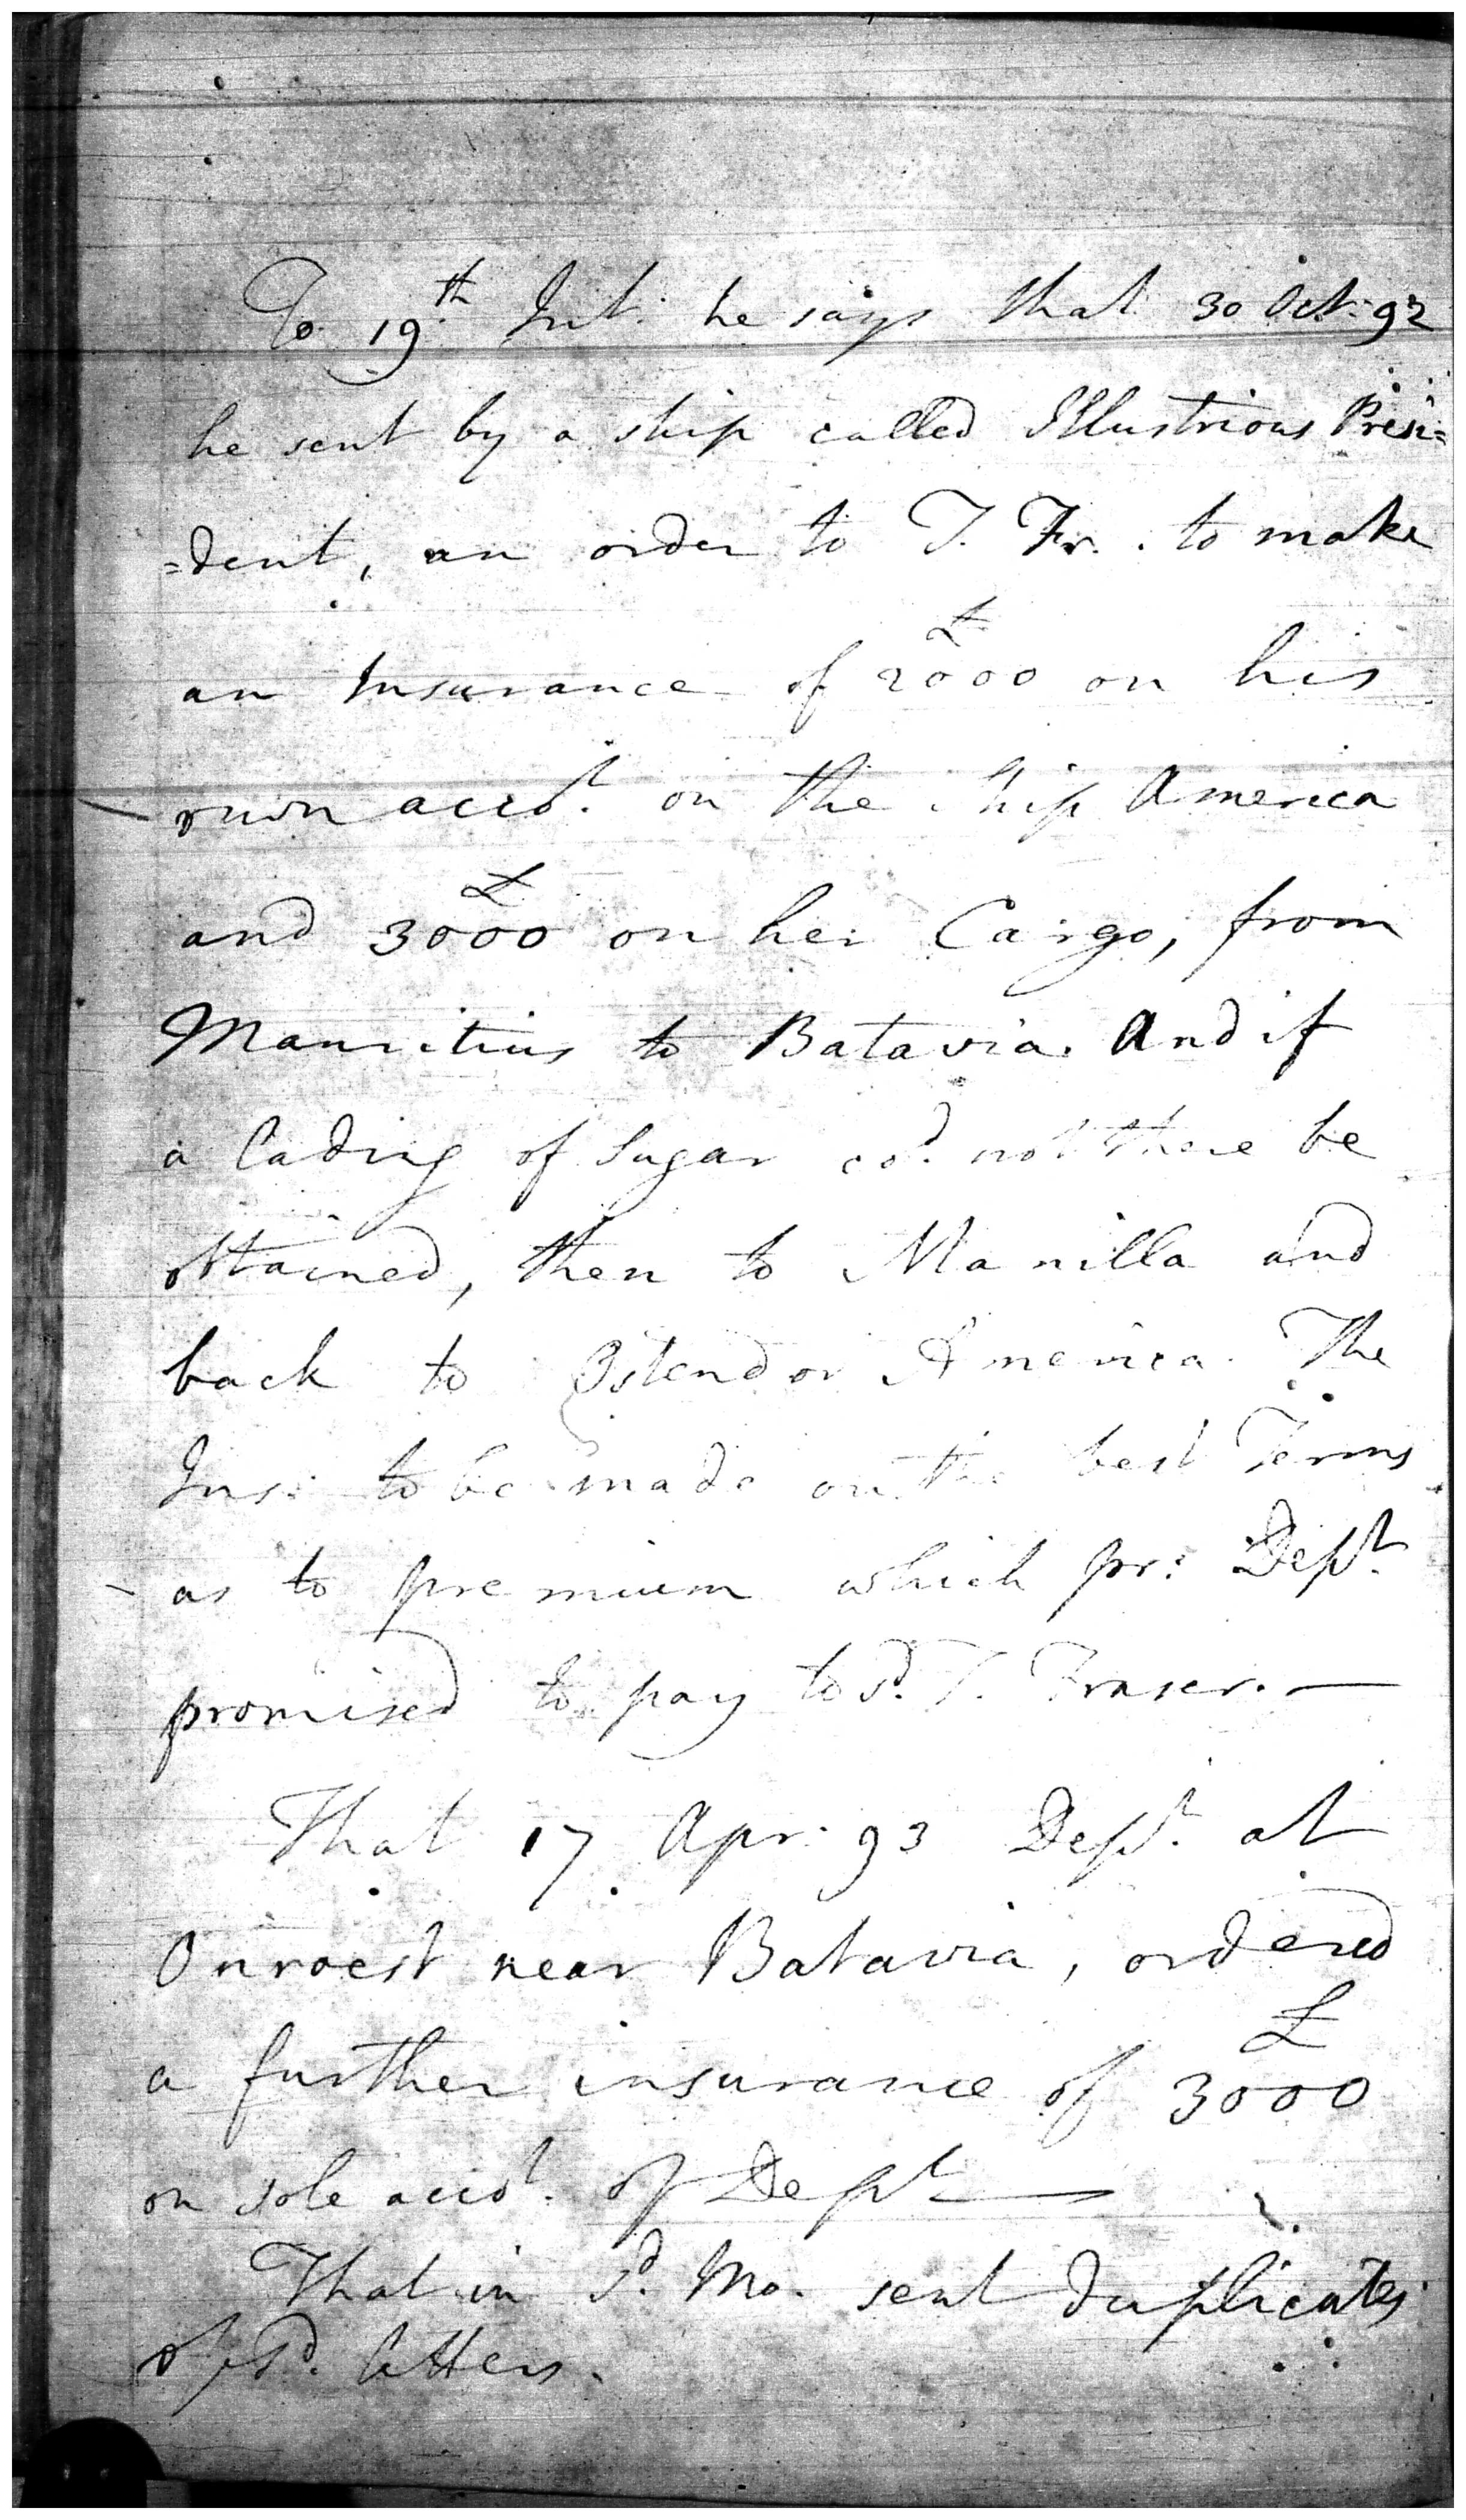 To 19th Int. he says that 30 Oct: 92
he sent by a ship called Illustrious Presi=
=dent, an order to T. Fr. to make
an Insurance of £2000 on his
own accot. on the ship America
and £3000 on her Cargo, from
Mauritius to Batavia. And if
a lading of Sugar cd. not there be
obtained, then to Manilla and
back to Ostend or America. The
Ins: to be made on the best Terms
as to premium which pr: Dept.
promised to pay to sd. T. Fraser.—
That 17 Apr: 93 Dept. at
Onroest near Batavia, ordered
a further insurance of £3000
on sole accot. of Dept—
That in sd. Mo. sent duplicates
of sd. letters.